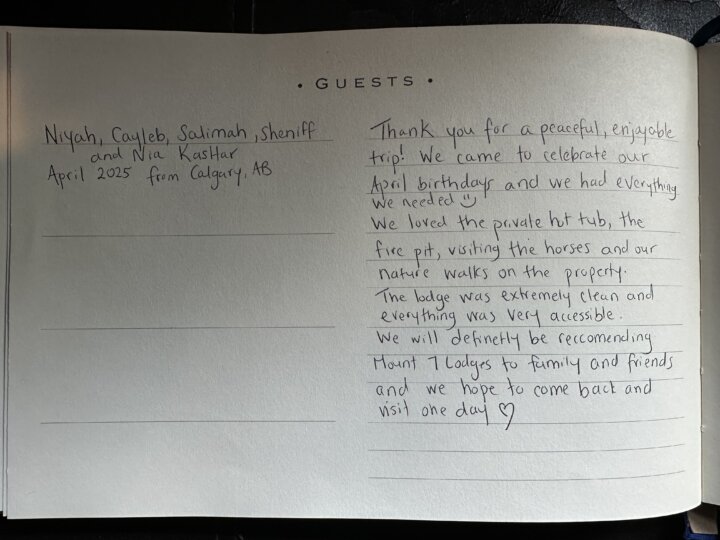 • GUESTS •
Niyah, Cayleb, Salimah, Sheniff
and Nia Kassar
April 2025 from Calgary, AB
Thank you for a peaceful, enjoyable
trip! We came to celebrate our
April birthdays and we had everything
we needed ☺
We loved the private hot tub, the
fire pit, visiting the horses and our
nature walks on the property.
The lodge was extremely clean and
everything was very accessible.
We will definetly be reccomending
Mount 7 Lodges to family and friends
and we hope to come back and
visit one day ♡